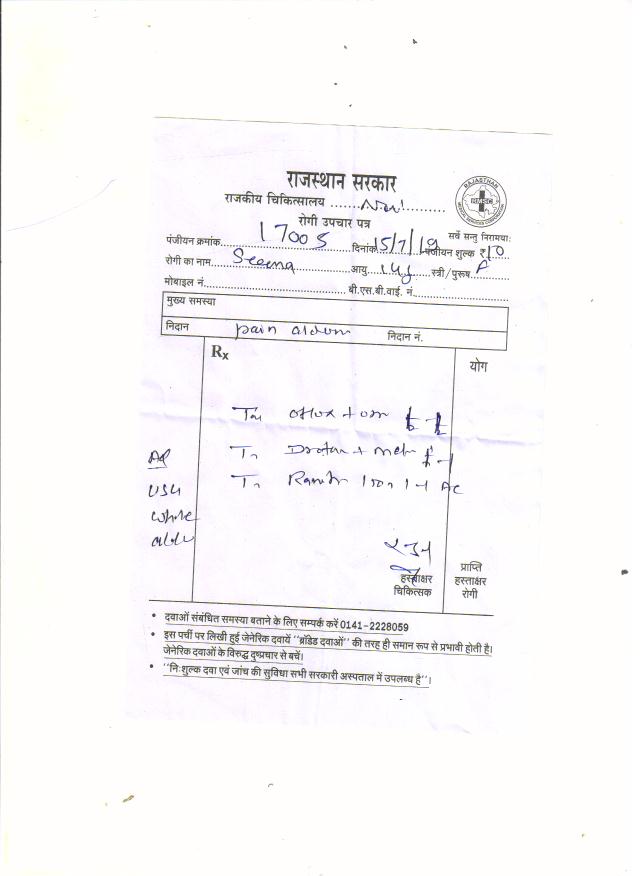 राजस्थान सरकार
राजकीय चिकित्सालय ....................
रोगी उपचार पत्र
RAJASTHAN
सर्वे सन्तु निरामयाः
पंजीयन क्रमांक 17005 दिनांक 15/7/19 पंजीयन शुल्क ₹10
रोगी का नाम Seema आयु 14y स्त्री/पुरूष F
मोबाइल नं. बी.एस.बी.वाई. नं.
मुख्य समस्या
निदान pain निदान नं.
Rx
योग
oflox + orn
Drotav +
AC
USG
whole
हस्ताक्षर
चिकित्सक
प्राप्ति
हस्ताक्षर
रोगी
• दवाओं संबंधित समस्या बताने के लिए सम्पर्क करें 0141-2228059
• इस पर्ची पर लिखी हुई जेनेरिक दवायें "ब्राँडेड दवाओं" की तरह ही समान रूप से प्रभावी होती है।
जेनेरिक दवाओं के विरुद्ध दुष्प्रचार से बचें।
• "निःशुल्क दवा एवं जांच की सुविधा सभी सरकारी अस्पताल में उपलब्ध है"।